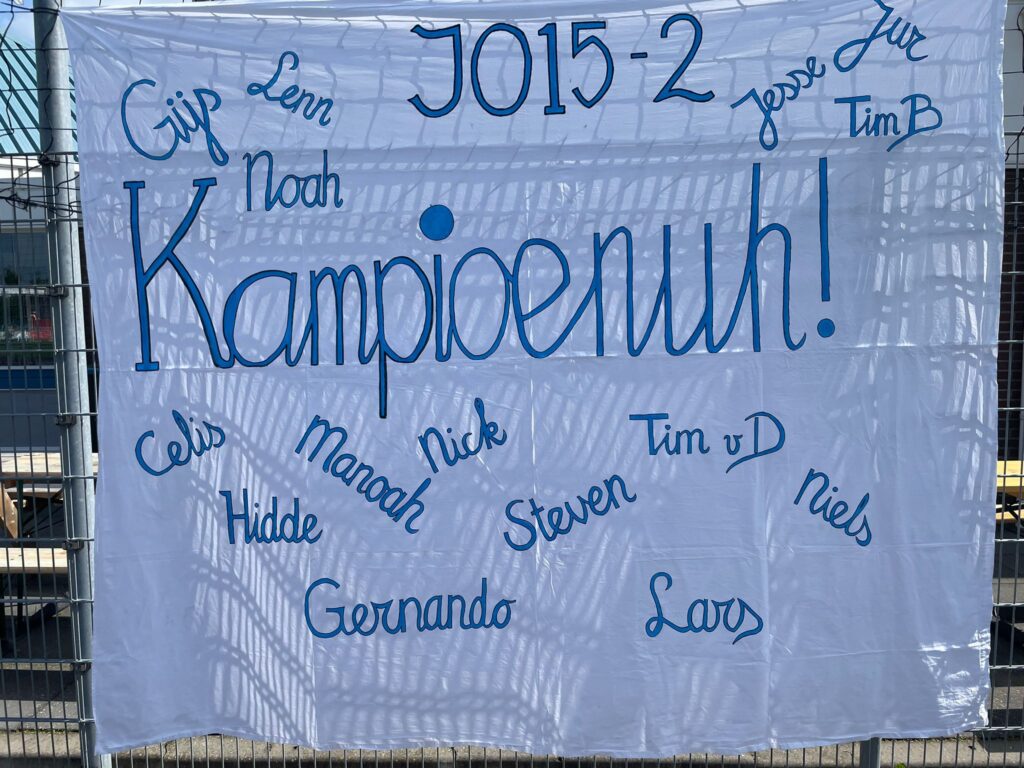 JO15-2
Gijs
Lenn
Jesse
Jur
Tim B
Noah
Kampioenuh!
Celis
Manoah
Nick
Tim vD
Hidde
Steven
Niels
Gernando
Lars